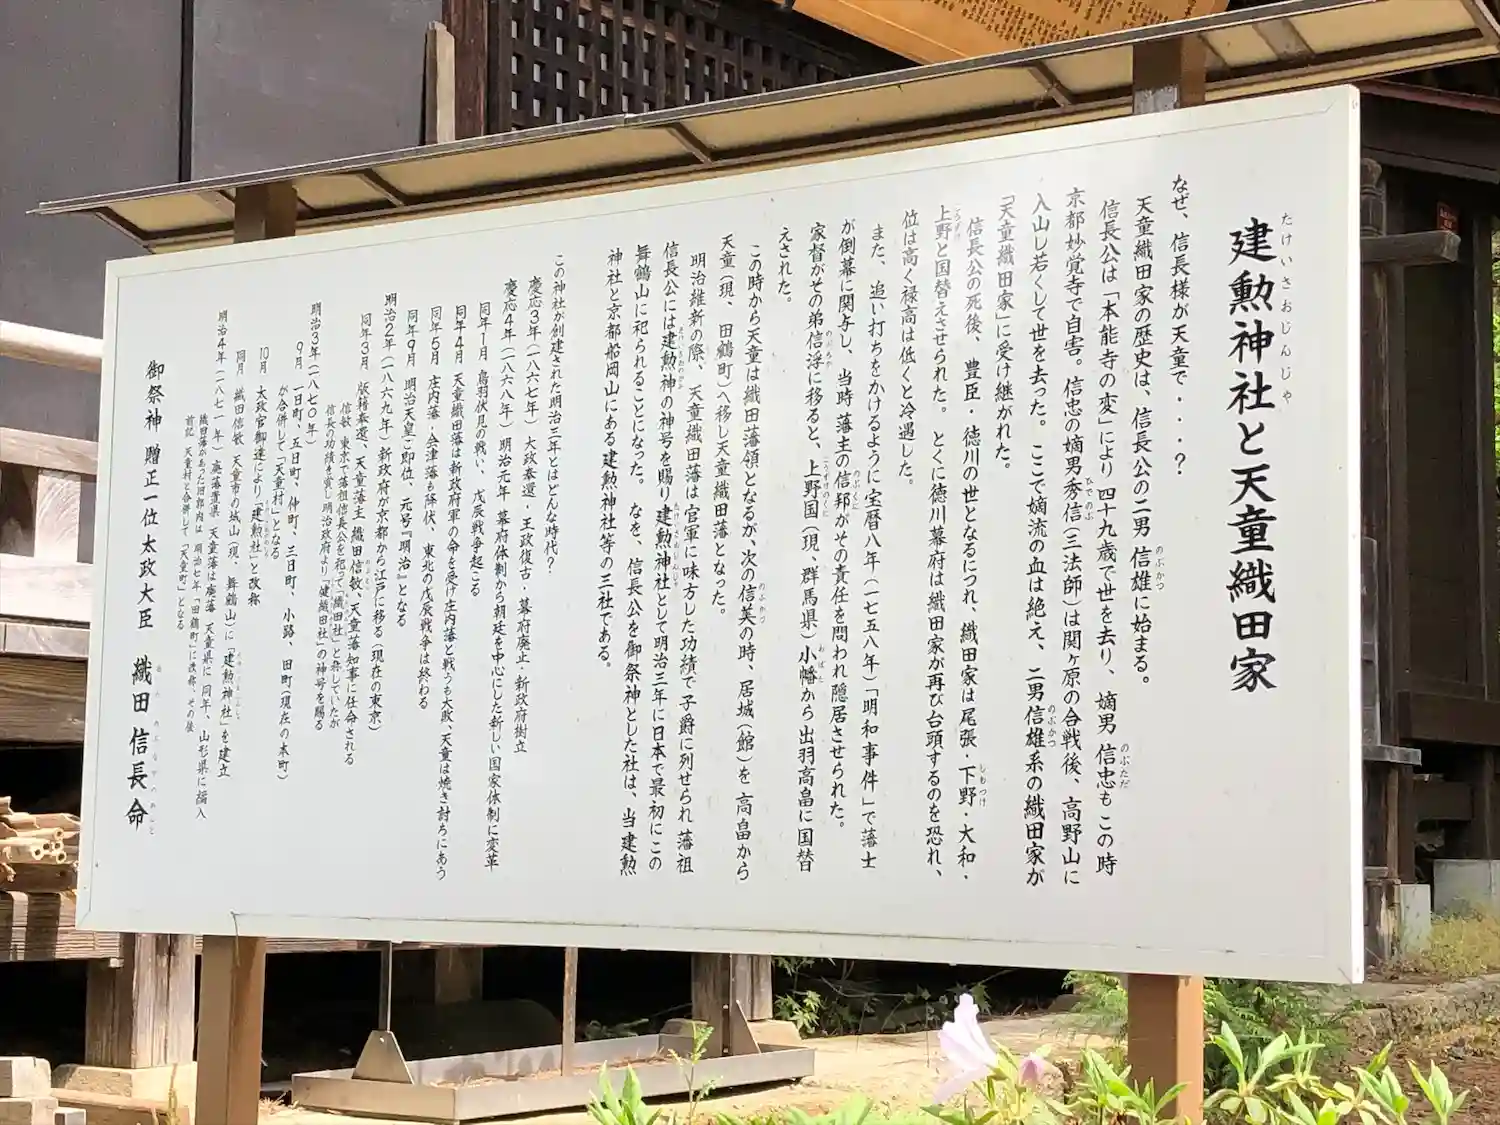 建勲神社と天童織田家
たけいさおじんじゃ
なぜ、信長様が天童で・・・?
天童織田家の歴史は、信長公の二男 信雄に始まる。
のぶかつ
信長公は「本能寺の変」により 四十九歳で世を去り、嫡男 信忠も この時
のぶただ
京都妙覚寺で自害。信忠の嫡男秀信(三法師)は関ヶ原の合戦後、高野山に
ひでのぶ
入山し若くして世を去った。ここで嫡流の血は絶え、二男 信雄系の織田家が
のぶかつ
「天童織田家」に受け継がれた。
信長公の死後、豊臣・徳川の世となるにつれ、織田家は尾張・下野・大和・
しもつけ
上野と国替えさせられた。とくに徳川幕府は織田家が再び台頭するのを恐れ、
こうずけ
位は高く禄高は低くと冷遇した。
また、追い打ちをかけるように宝暦八年(一七五八年)「明和事件」で藩士
が倒幕に関与し、当時 藩主の信邦がその責任を問われ隠居させられた。
のぶくに
家督がその弟信浮に移ると、上野国(現、群馬県)小幡から出羽高畠に国替
のぶちか
こうずけのくに
おばた
えされた。
この時から天童は織田藩領となるが、次の信美の時、居城(館)を高畠から
のぶかづ
天童(現、田鶴町)へ移し天童織田藩となった。
明治維新の際、天童織田藩は官軍に味方した功績で子爵に列せられ 藩祖
信長公には建勲神の神号を賜り建勲神社として明治三年に日本で最初にこの
たけいさおじんじゃ
舞鶴山に祀られることになった。なを、信長公を御祭神とした社は、当建勲
神社と京都船岡山にある建勲神社等の三社である。
この神社が創建された明治三年とはどんな時代?
慶応3年(一八六七年) 大政奉還・王政復古・幕府廃止・新政府樹立
慶応4年(一八六八年) 明治元年 幕府体制から朝廷を中心にした新しい国家体制に変革
同年1月 鳥羽伏見の戦い、戊辰戦争起こる
同年4月 天童織田藩は新政府軍の命を受け庄内藩と戦うも大敗、天童は焼き討ちにあう
同年5月 庄内藩・会津藩も降伏、東北の戊辰戦争は終わる
同年9月 明治天皇ご即位、元号『明治』となる
明治2年(一八六九年) 新政府が京都から江戸に移る(現在の東京)
同年3月 版籍奉還、天童藩主 織田信敏、天童藩知事に任命される
のぶとし
信敏 東京で藩祖信長公を祀って「織田社」と称していたが
信長の功績を賞し明治政府より「健織田社」の神号を賜る
明治3年(一八七〇年)
9月 一日町、五日町、仲町、三日町、小路、田町(現在の本町)
が合併して「天童村」となる
10月 太政官御達により「建勲社」と改称
同月 織田信敏 天童市の城山(現、舞鶴山)に「建勲神社」を建立
明治4年(一八七一年) 廃藩置県 天童藩は廃藩 天童県に 同年、山形県に編入
織田藩があった旧郭内は 明治七年「田鶴町」に改称、その後
前記 天童村と合併して「天童町」となる
御祭神 贈正一位 太政大臣 織田信長命
おだのぶながのみこと